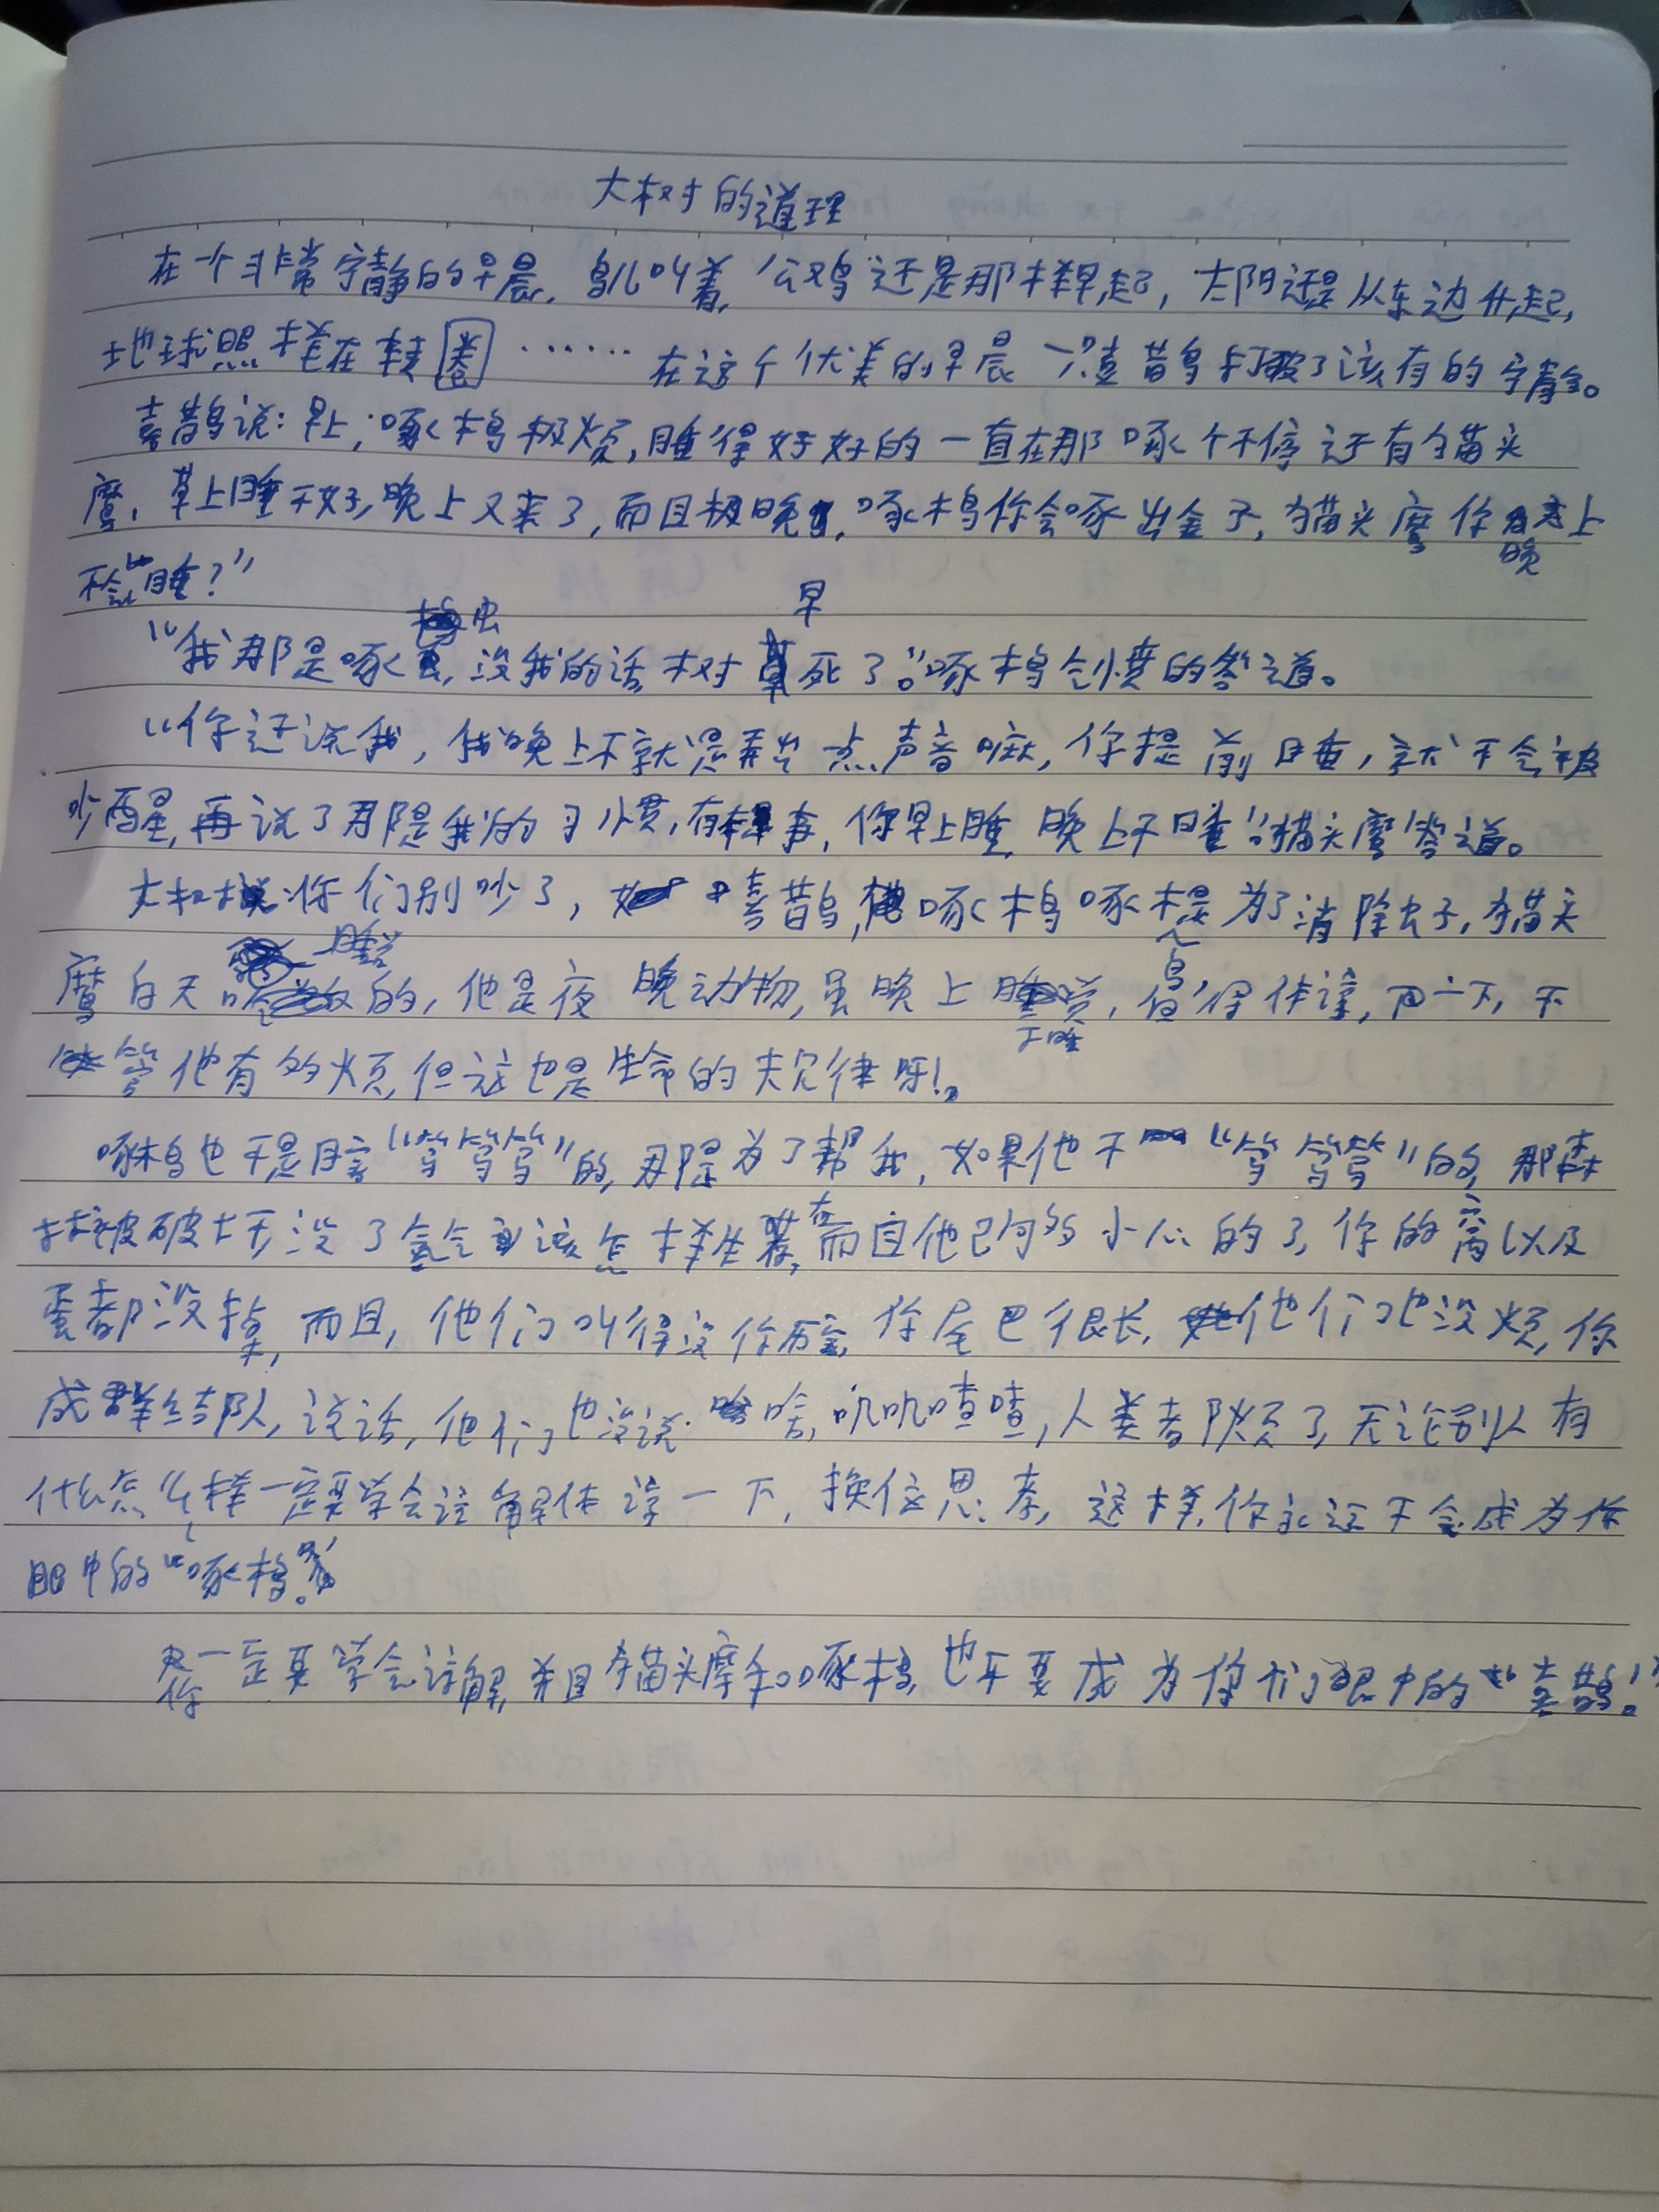 大树的道理
在一个非常宁静的早晨,鸟儿叫着,公鸡还是那样早起,太阳还是从东边升起,
地球照样在转圈……在这个优美的早晨一只喜鹊打破了该有的宁静。
喜鹊说:早上,啄木鸟极烦,睡得好好的一直在那啄个不停还有猫头
鹰,早上睡不好,晚上又来了,而且极晚,啄木鸟你会啄出金子,猫头鹰你晚上
不会睡?”
“我那是啄虫,没我的话树早死了。”啄木鸟气愤的答道。
“你还说我,我晚上不就是弄出点声音嘛,你提前睡,就不会被
吵醒,再说了那是我的习惯,有本事,你早上睡,晚上不睡”猫头鹰答道。
大树说:你们别吵了,喜鹊,啄木鸟啄木是为了消除虫子,猫头
鹰白天睡觉的,他是夜晚动物,虽晚上不睡,鸟得体谅,一下,不
管他有多烦,但这也是生命的规律呀!。
啄木鸟也不是瞎“笃笃笃”的,那是为了帮我,如果他不“笃笃笃”的,那森
林被破坏,没了氧气该怎样生存,而且他已何多小心的了,你的窝以及
蛋都没掉,而且,他们叫得没你厉害,你尾巴很长,他们也没烦,你
成群结队,说话,他们也没说啥,叽叽喳喳,人类都烦了,无论别人有
什么怎么样一定要学会谅解体谅一下,换位思考,这样,你永远不会成为你
眼中的“啄木鸟。”
你一定要学会谅解,并且猫头鹰和啄木鸟,也不要成为你们眼中的“喜鹊!”